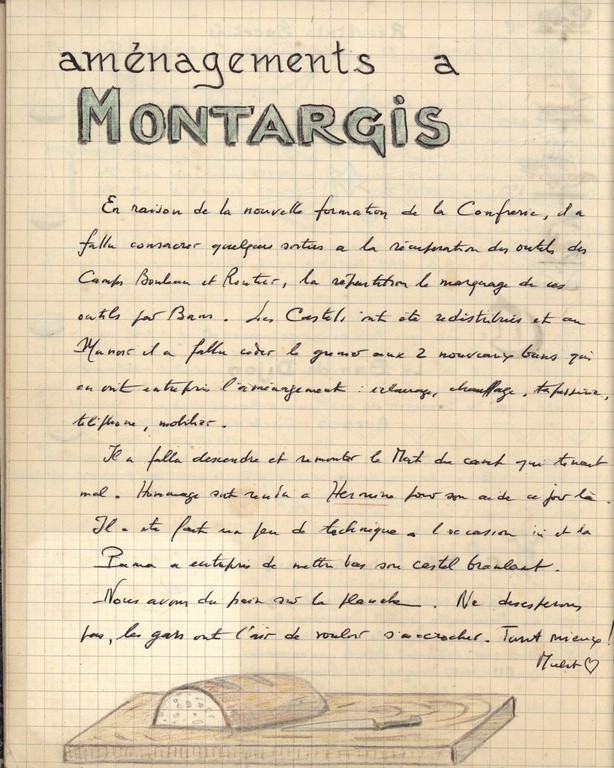 aménagements a
MONTARGIS
En raison de la nouvelle formation de la Confrerie, il a
fallu consacrer quelques sorties a la récuperation des outils des
Camps Bouleau et Routier, la répartition le marquage de ces
outils par Bans. Les Castels ont été redistribués et au
Manoir il a fallu céder le grenier aux 2 nouveaux bans qui
en ont entrepris l'aménagement : éclairage, chauffage, tapisserie,
téléphone, mobilier.
Il a fallu descendre et remonter le Mat du camp qui tenait
mal. Hommage soit rendu a Hermine pour son aide ce jour là.
Il a été fait un peu de technique a l'occasion ici et là
Puma a entrepris de mettre bas son castel branlant.
Nous avons du pain sur la planche. Ne desesperons
pas, les gars ont l'air de vouloir s'accrocher. Tant mieux !